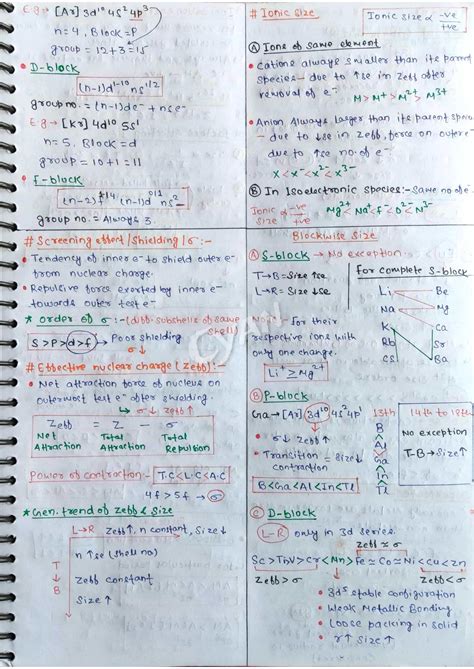 E.g → [Ar] 3d¹⁰ 4s² 4p³
n = 4, Block = P
group = 12+3 = 15
• D-block
(n-1)d¹⁻¹⁰ ns¹/²
group no. = (n-1)de⁻ + nse⁻
E.g → [Kr] 4d¹⁰ 5s¹
n = 5, Block = d
group = 10+1 = 11
• f-block
(n-2)f¹⁻¹⁴ (n-1)d⁰/¹ ns²
group no. = Always 3.
# Screening effect / Shielding / σ :-
• Tendency of inner e⁻ to shield outer e⁻
from nuclear charge.
• Repulsive force exerted by inner e⁻
towards outer test e⁻
* Order of σ :- (diff. subshells of same
shell)
S > P > d > f → Poor shielding
σ↓
# Effective nuclear charge (Zeff) :-
• Net attraction force of nucleus on
outermost test e⁻ after shielding.
σ↓ Zeff ↑
Zeff = Z - σ
Net Attraction
Total Attraction
Total Repulsion
Power of contraction :- T.C < L.C < A.C
4f > 5f → σ
* Gen. trend of Zeff & Size
L→R Zeff↑, n constant, Size↓
T
B
n ↑se (shell no)
Zeff constant
Size ↑
# Ionic Size
Ionic size ∝ -ve/+ve
Ⓐ Ions of same element
• Cations always smaller than its parent
species - due to ↑se in Zeff after
removal of e⁻
M > M⁺ > M²⁺ > M³⁺
• Anion Always larger than its parent
- due to ↓se in Zeff, force on outer e⁻
due to ↑se no. of e⁻
X < X⁻ < X²⁻ < X³⁻
Ⓑ In Isoelectronic Species :- Same no. of e⁻
Ionic ∝ -ve/+ve
Mg²⁺ < Na⁺ < F⁻ < O²⁻ < N³⁻
Blockwise Size
Ⓐ S-block → No exception
T→B = Size ↑se
L→R = Size ↓se
for their
respective ions with
only one change.
Li⁺ ≥ Mg²⁺
For complete S-block
Li Be
Na Mg
K Ca
Rb Sr
Cs Ba
Ⓑ P-block
Ga → [Ar] 3d¹⁰ 4s² 4p¹
• σ↓ Zeff↑
• Transition contraction = Size↓
B < Ga < Al < In < Tl
13th
B
Al
Ga
In
Tl
14th to 18th
No exception
T-B → Size↑
Ⓒ D-block
L-R only in 3d series.
Zeff ≈ σ
Sc > Ti > V > Cr < Mn > Fe ≃ Co ≃ Ni < Cu < Zn
Zeff > σ
Zeff < σ
• 3d⁵ stable configuration
• Weak Metallic Bonding
• Loose packing in solid
• r↑ Size↑